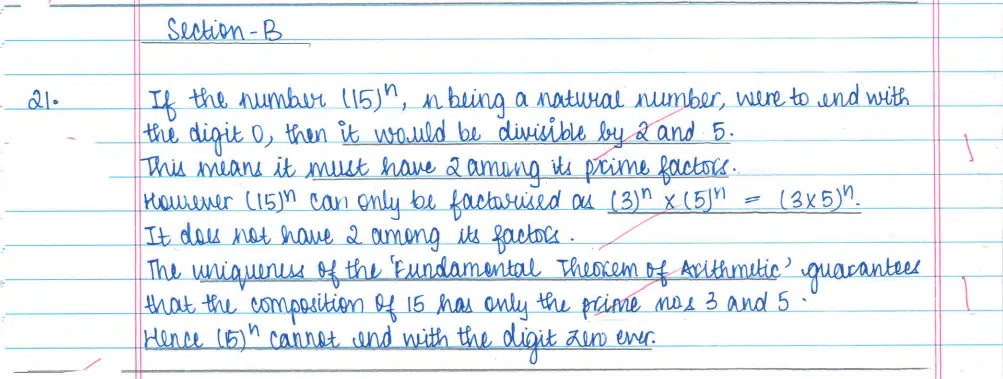 Section-B
21. If the number (15)ⁿ, n being a natural number, were to end with
the digit 0, then it would be divisible by 2 and 5.
This means it must have 2 among its prime factors. 1
However (15)ⁿ can only be factorised as (3)ⁿ x (5)ⁿ = (3x5)ⁿ.
It does not have 2 among its factors.
The uniqueness of the 'Fundamental Theorem of Arithmetic' guarantees
that the composition of 15 has only the prime nos 3 and 5. 1
Hence (15)ⁿ cannot end with the digit zero ever.